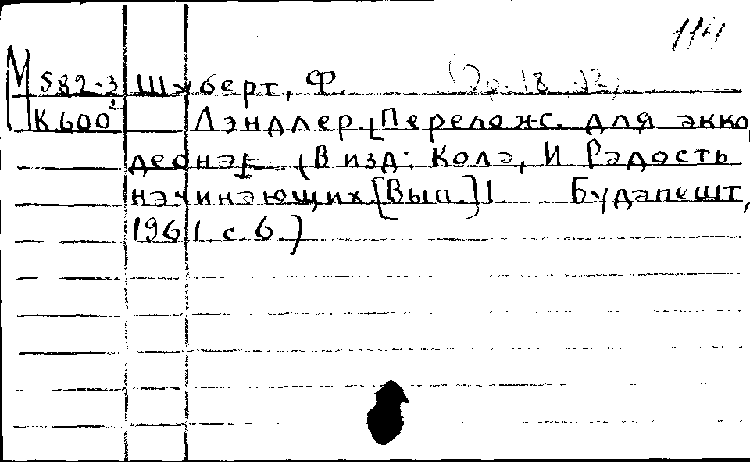 М 582-3 Шуберт, Ф.
К 600 Лэндлер. [Перелож. для аккор
деона]. (В изд: Кола, И Радость
начинающих. [Вып.] 1 Будапешт,
1961. с. 6.)